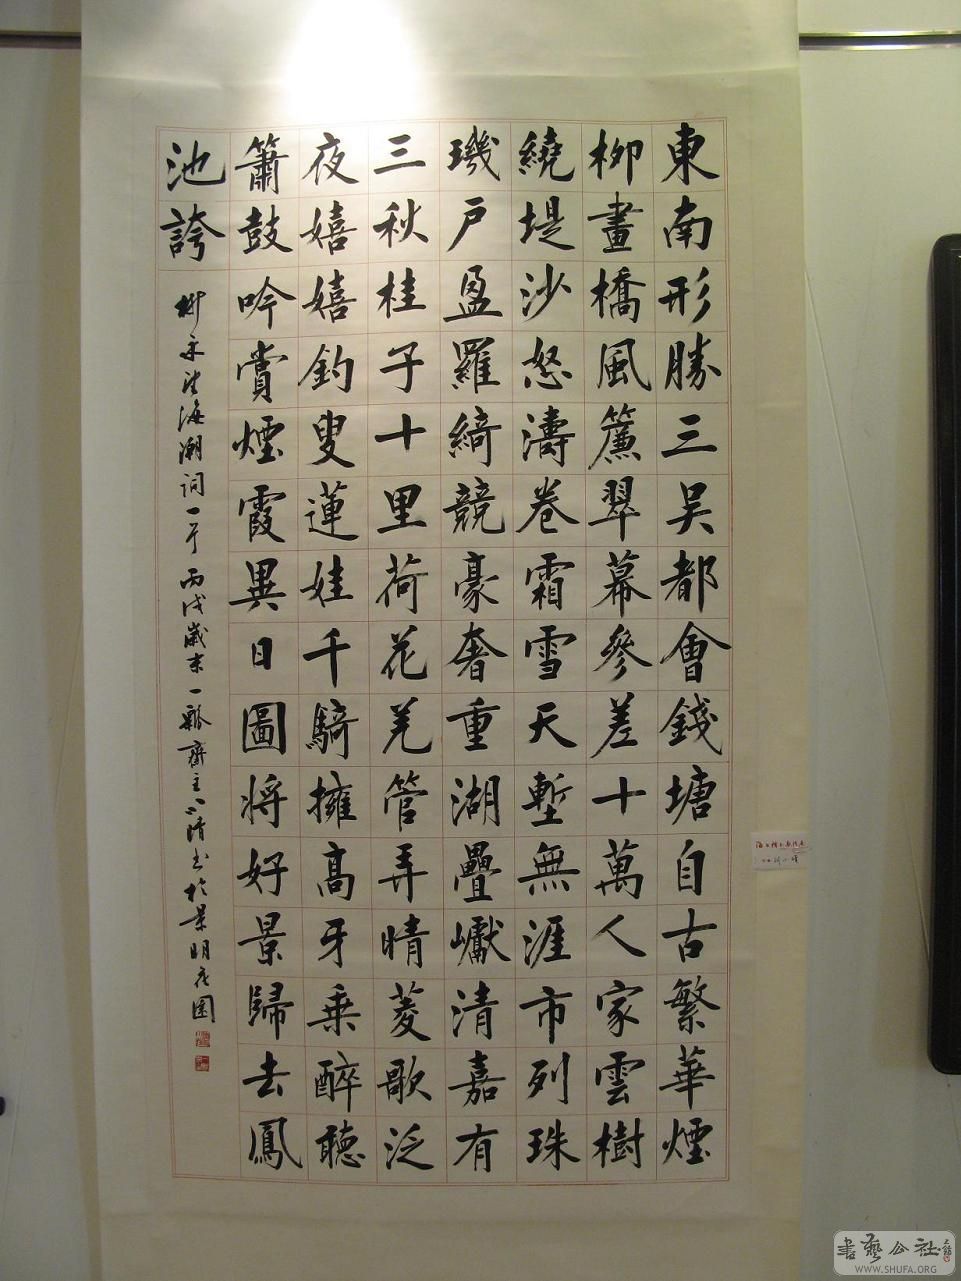 東南形勝三吳都會錢塘自古繁華煙
柳畫橋風簾翠幕參差十萬人家雲樹
繞堤沙怒濤卷霜雪天塹無涯市列珠
璣戶盈羅綺競豪奢重湖疊巘清嘉有
三秋桂子十里荷花羌管弄晴菱歌泛
夜嬉嬉釣叟蓮娃千騎擁高牙乘醉聽
簫鼓吟賞煙霞異日圖將好景歸去鳳
池誇
柳永望海潮詞一 丙戌歲末一瓢齋主 清书於景明花園
書藝公社
WWW.SHUFA.ORG